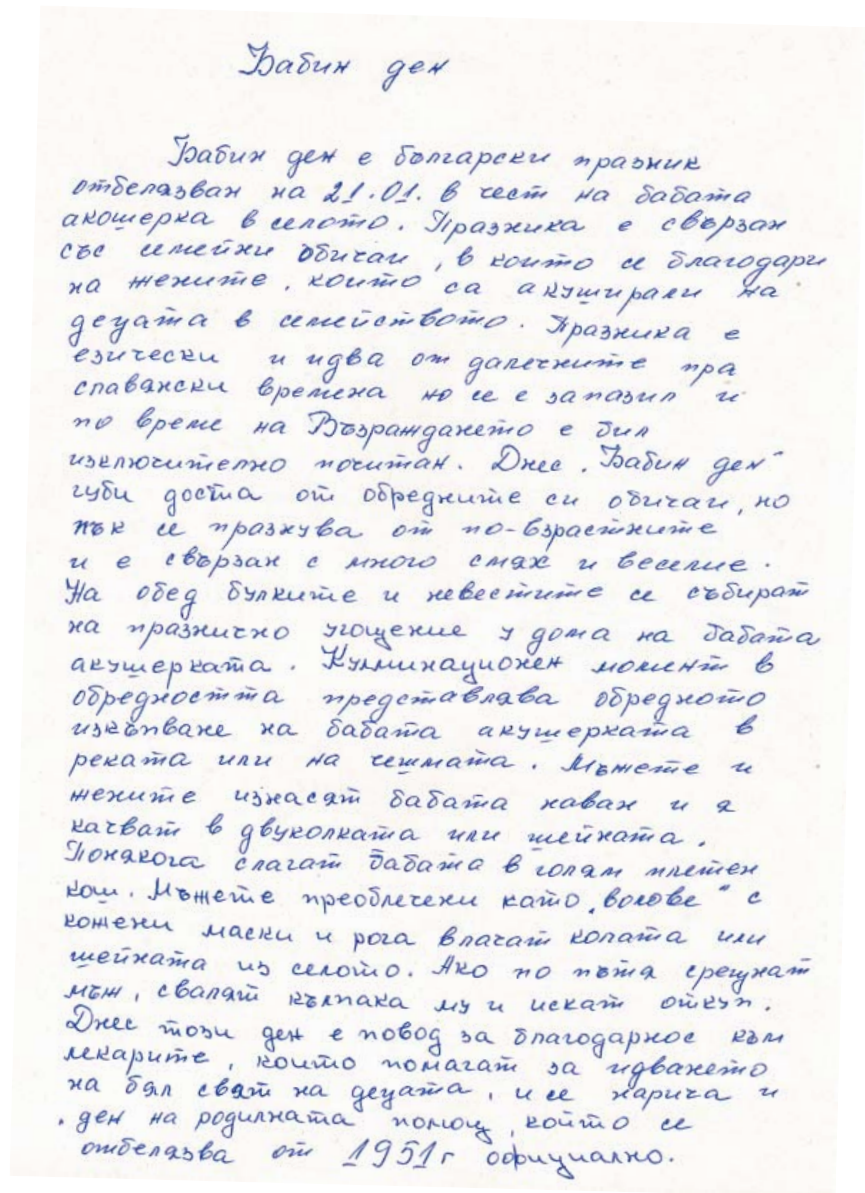 Бабин ден
Бабин ден е български празник
отбелязван на 21.01. в чест на бабата
акошерка в селото. Празника е свързан
със семейни обичаи, в които се благодари
на жените, които са акуширали на
децата в семейството. Празника е
езически и идва от далечните пра
славянски времена но се е запазил и
по време на Възраждането е бил
изключително почитан. Днес „Бабин ден“
губи доста от обредните си обичаи, но
пък се празнува от по-възрастните
и е свързан с много смях и веселие.
На обед булките и невестите се събират
на празнично угощение у дома на бабата
акушерката. Кулминационен момент в
обредността представлява обредното
изкъпване на бабата акушерката в
реката или на чешмата. Мъжете и
жените изнасят бабата наван и я
качват в двуколката или шейната.
Понякога слагат бабата в голям плетен
кош. Мъжете преоблечени като „волове“ с
кожени маски и рога влачат колата или
шейната из селото. Ако по пътя срещнат
мъж, свалят калпака му и искат откуп.
Днес този ден е повод за благодарнос към
лекарите, които помагат за идването
на бял свят на децата, и се нарича и
„ден на родилната помощ, който се
отбелязва от 1951г официално.